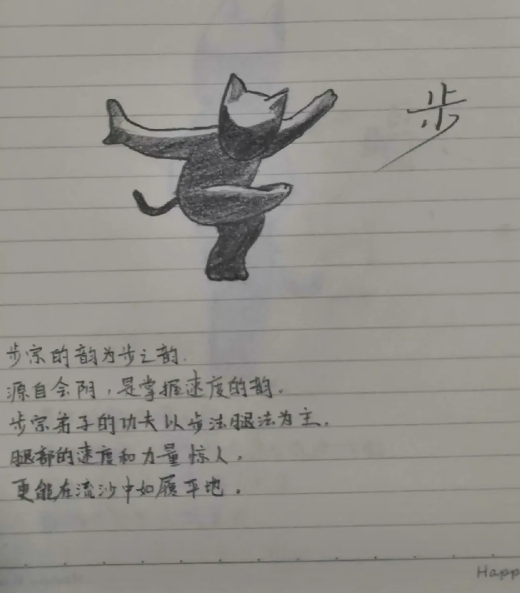 步
步宗的韵为步之韵.
源自会阴，是掌握速度的韵。
步宗弟子的功夫以步法腿法为主，
腿部的速度和力量惊人，
更能在流沙中如履平地。
Happ